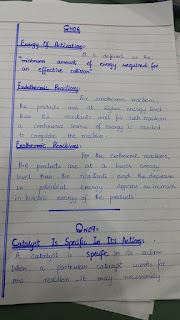 Q no 06
Energy Of Activation:
It is defined as the,
"minimum amount of energy required for
an effective collision".
Endothermic Reactions:
For endothermic reactions,
the products are at higher energy level
than the reactants and for such reactions
a continuous source of energy is needed
to complete the reaction.
Exothermic Reactions:
For the exothermic reactions,
the products are at a lower energy
level than the reactants and the decrease
in potential energy appears as increase
in kinetic energy of the products
Q no 07.
Catalyst Is Specific In Its Action:
A catalyst is specific in its action
When a particular catalyst works for
one reaction, it may necessarily